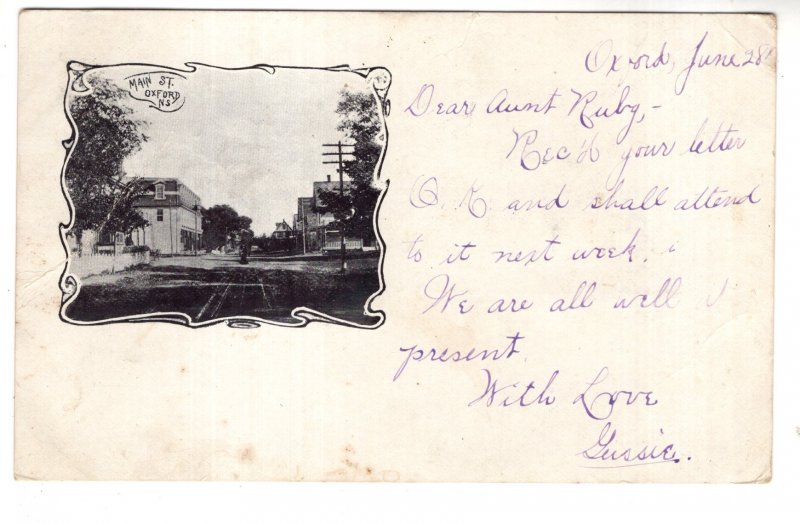 MAIN ST.
OXFORD
NS
Oxford, June 28
Dear Aunt Ruby,-
Rec'd your letter
O. K. and shall attend
to it next week.
We are all well
present.
With Love
Gussie.